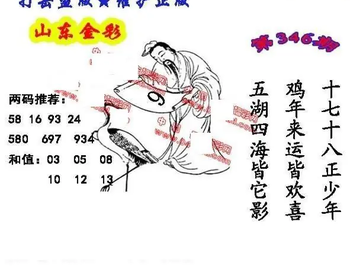 打击盗版 维护正版
山东金彩
第346期
两码推荐:
58 16 93 24
580 697 934
和值: 03 05 08
10 12 13
9
十七十八正少年
鸡年来运皆欢喜
五湖四海皆它影